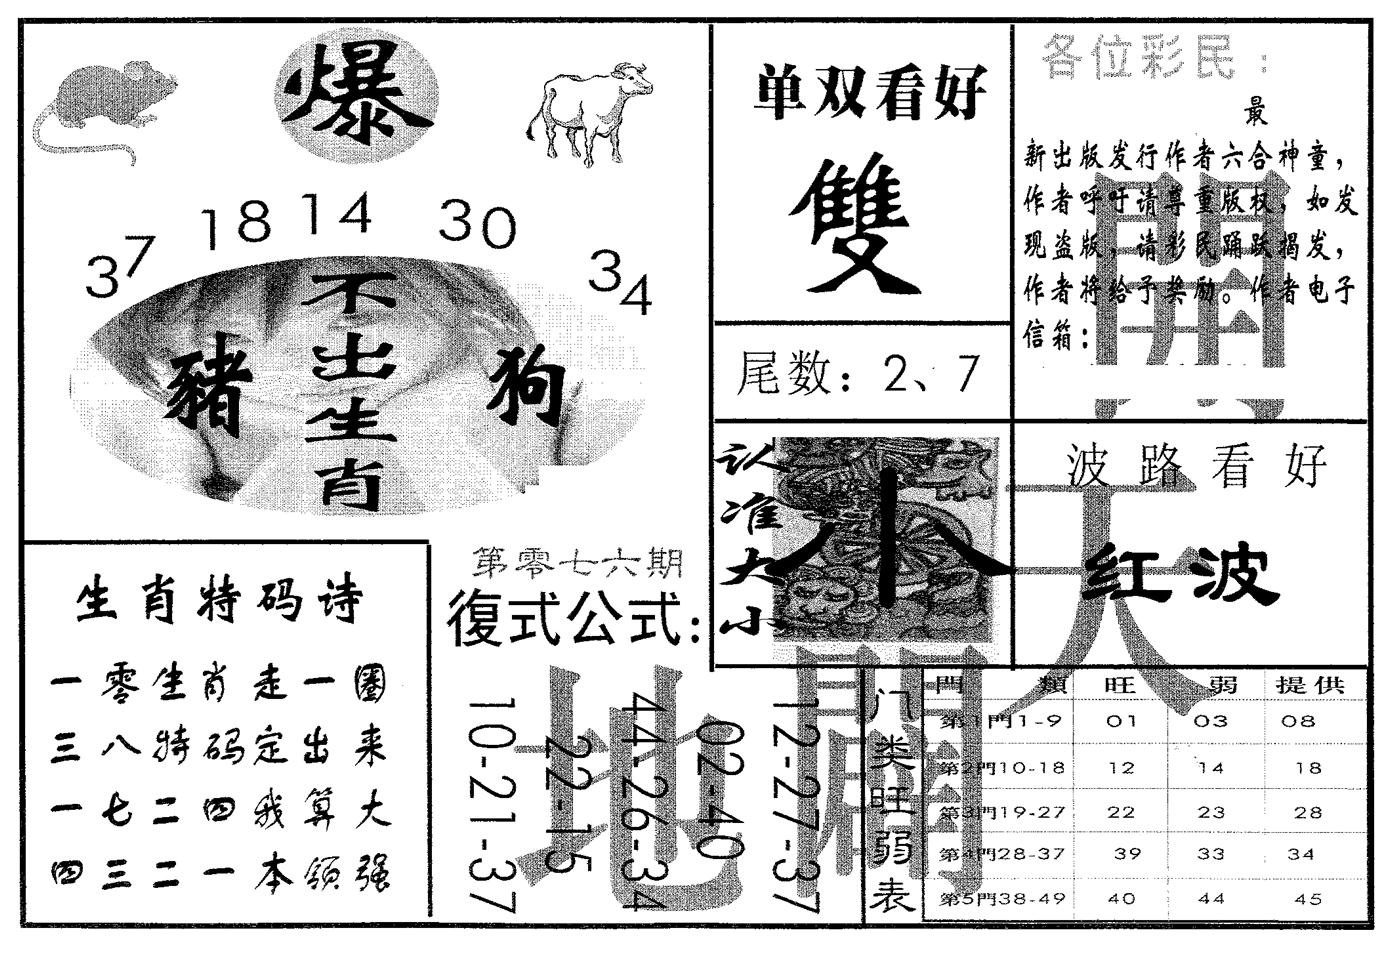 爆
37 18 14 30 34
不出生肖
豬
狗
单双看好
雙
尾数：2、7
各位彩民：
最
新出版发行作者六合神童，
作者呼吁请尊重版权，如发
现盗版，请彩民踊跃揭发，
作者将给予奖励。作者电子
信箱：
认准大小
小
波路看好
红波
開天
闢地
生肖特码诗
一零生肖走一圈
三八特码定出来
一七二四我算大
四三二一本领强
第零七六期
復式公式:
10-21-37
22-15
44-26-34
02-40
12-27-37
门类旺弱表
門類 旺 弱 提供
第1門1-9 01 03 08
第2門10-18 12 14 18
第3門19-27 22 23 28
第4門28-37 39 33 34
第5門38-49 40 44 45